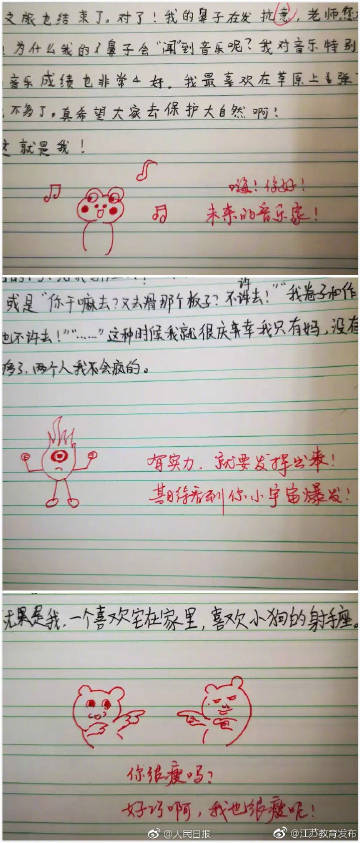 也结束了。对了！我的鼻子在发
为什么我的鼻子会“闻”到音乐呢？我对音乐特别
音乐成绩也非常好。我最喜欢在草原上
不为了。真希望大家去保护大自然啊！
这就是我！
嗨！你好！
未来的音乐家！
或是“你干嘛去？又去滑那个板子？不许去！”“我卷子和作
也不许去！”“……”这种时候我就很庆幸我只有妈，没有
两个人我不会疯的。
有实力，就要发挥出来！
期待看到你小宇宙爆发！
尤果是我，一个喜欢宅在家里，喜欢小狗的射手座。
你很瘦吗？
好巧啊，我也很瘦呢！
@人民日报
@江苏教育发布